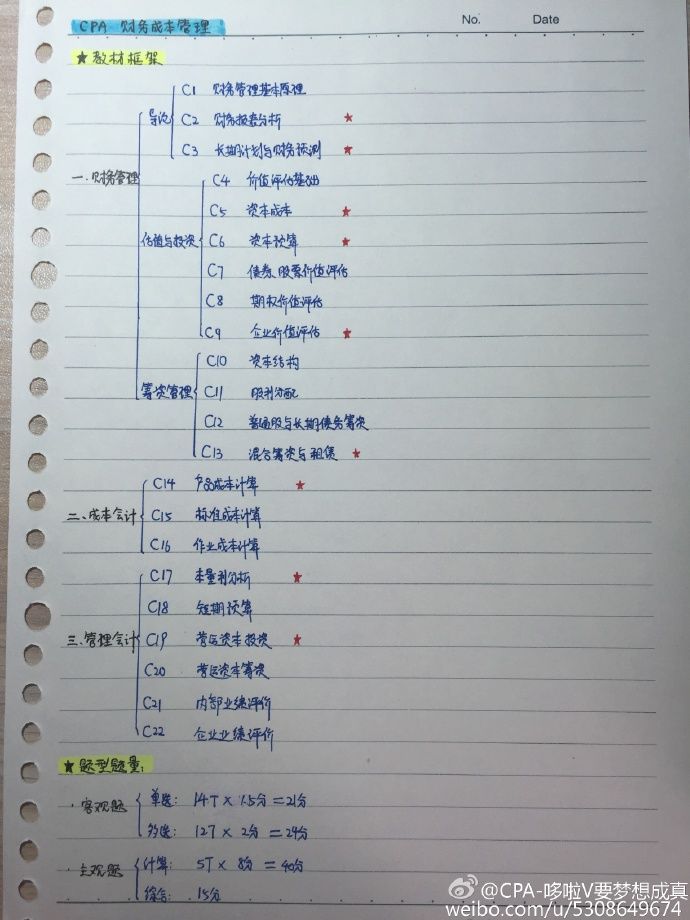 No. Date
CPA 财务成本管理
★教材框架
C1 财务管理基本原理
导论 C2 财务报表分析 ★
C3 长期计划与财务预测 ★
一.财务管理 C4 价值评估基础
C5 资本成本 ★
估值与投资 C6 资本预算 ★
C7 债券、股票价值评估
C8 期权价值评估
C9 企业价值评估 ★
C10 资本结构
筹资管理 C11 股利分配
C12 普通股与长期债务筹资
C13 混合筹资与租赁 ★
C14 产品成本计算 ★
二、成本会计 C15 标准成本计算
C16 作业成本计算
C17 本量利分析 ★
C18 短期预算
三、管理会计 C19 营运资本投资 ★
C20 营运资本筹资
C21 内部业绩评价
C22 企业业绩评价
★题型题量:
·客观题 单选: 14T×1.5分=21分
多选: 12T×2分=24分
·主观题 计算: 5T×8分=40分
综合: 15分
@CPA-哆啦V要梦想成真
weibo.com/u/5308649674